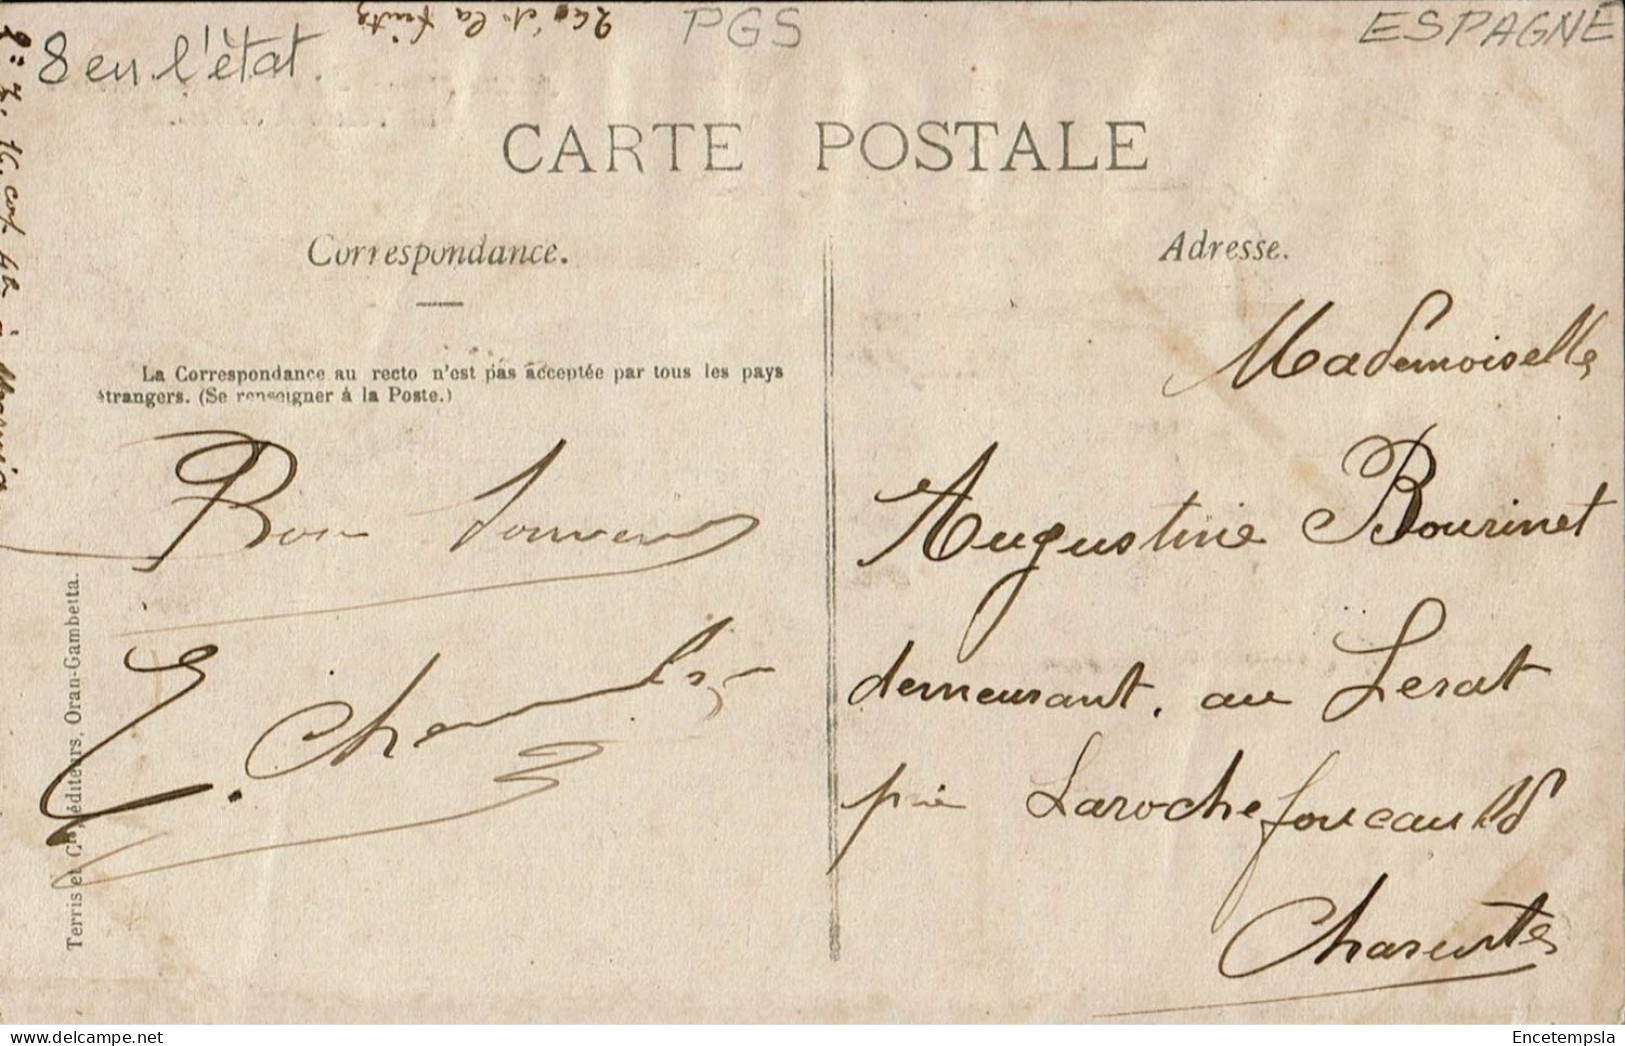 8 en l'état.
PGS
ESPAGNE
CARTE POSTALE
Correspondance.
Adresse.
La Correspondance au recto n'est pas acceptée par tous les pays
étrangers. (Se renseigner à la Poste.)
Bon Souvenir
E.
Mademoiselle
Augustine Bourinet
demeurant. au Lerat
près Larochefoucauld
Charente
Terris et Cie, éditeurs, Oran-Gambetta.
Encetempsla